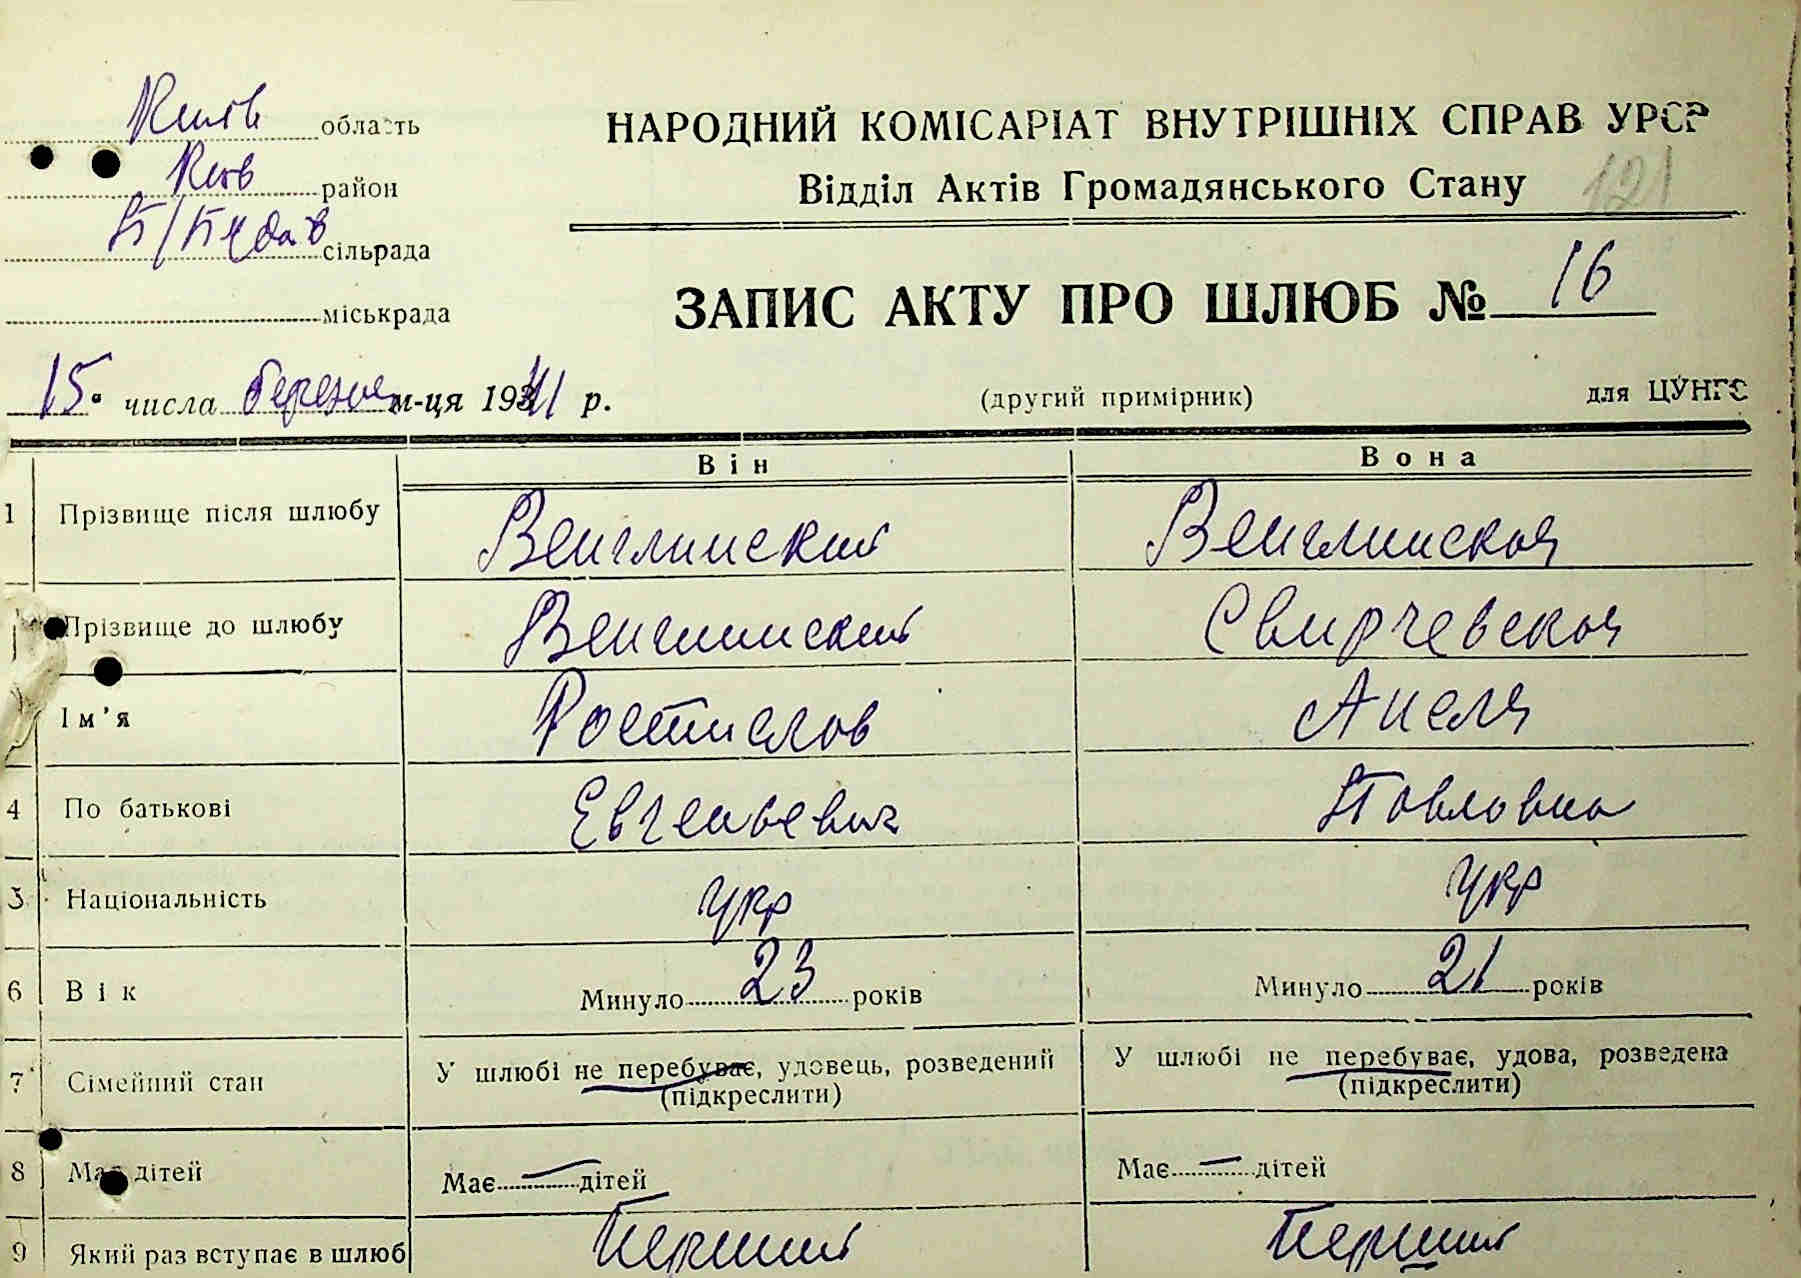 Київ область
Київ район
П/Будаїв сільрада
міськрада
НАРОДНИЙ КОМІСАРІАТ ВНУТРІШНІХ СПРАВ УРСР
Відділ Актів Громадянського Стану
121
ЗАПИС АКТУ ПРО ШЛЮБ № 16
15 числа березня м-ця 1941 р.
(другий примірник)
для ЦУНГО
Він
Вона
1 Прізвище після шлюбу Венглинский Венглинская
Прізвище до шлюбу Венглинский Свирчевская
Ім'я Ростислав Анеля
4 По батькові Евгеньевич Павловна
5 Національність укр укр
6 Вік Минуло 23 років Минуло 21 років
7 Сімейний стан У шлюбі не перебуває, удовець, розведений У шлюбі не перебуває, удова, розведена
(підкреслити) (підкреслити)
8 Має дітей Має — дітей Має — дітей
9 Який раз вступає в шлюб Перший Перший